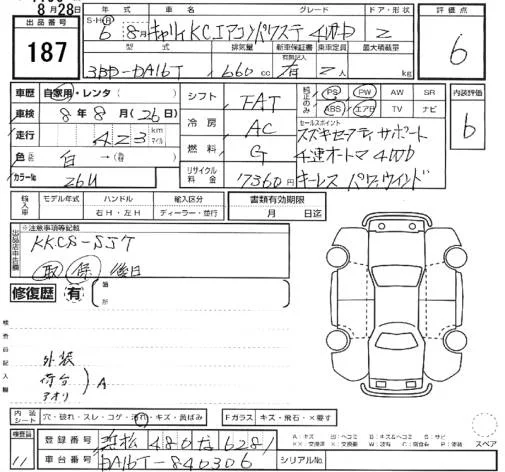 8月28日
出品番号 187
年式 S・H・R 6 8月
車名 キャリイKCエアコンパワステ4WD
グレード
ドア・形状 2
評価点 6
型式 3BD-DA16T
排気量 660cc
新車保証書 有無記入 有
乗車定員 2人
最大積載量 kg
車歴 自家用・レンタ( )
車検 8年8月(26日)
走行 423 km マイル
色 白→( 替)
カラーNo. 26U
シフト FAT
冷房 AC
燃料 G
リサイクル料金 17360円
純正のみ PS PW AW SR
ABS エアB TV ナビ
内装評価 6
セールスポイント
スズキセーフティサポート
4速オートマ 4WD
キーレス パワーウインド
輸入車 モデル年式 年 ハンドル 右H・左H 輸入区分 ディーラー・並行
書類有効期限 月 日迄
出品店申告欄
※注意事項等記載
KKCS-SJT
取 保 後日
修復歴 有 箇所
検査員記入欄
外装
荷台
アオリ
A
内装シート 穴・破れ・スレ・コゲ・汚れ・キズ・黄ばみ
Fガラス キズ・飛石・×要す
スペア
検査員 11
登録番号 浜松480な6281
車台番号 DA16T-840306
シリアルNo.